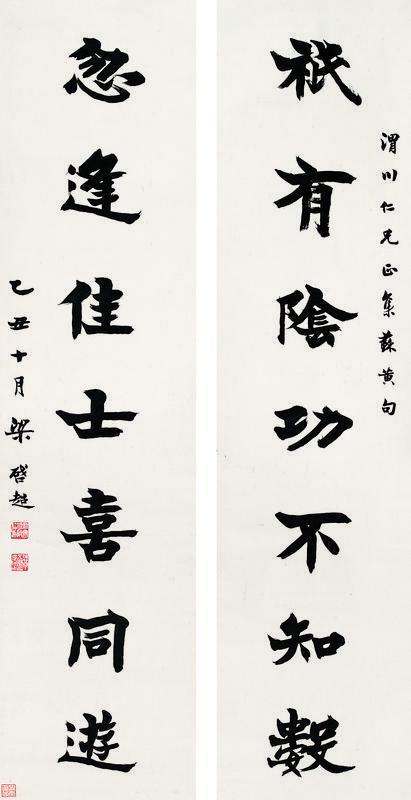 渭川仁兄正集蘇黄句
祇有陰功不知數
忽逢佳士喜同遊
乙丑十月梁啓超